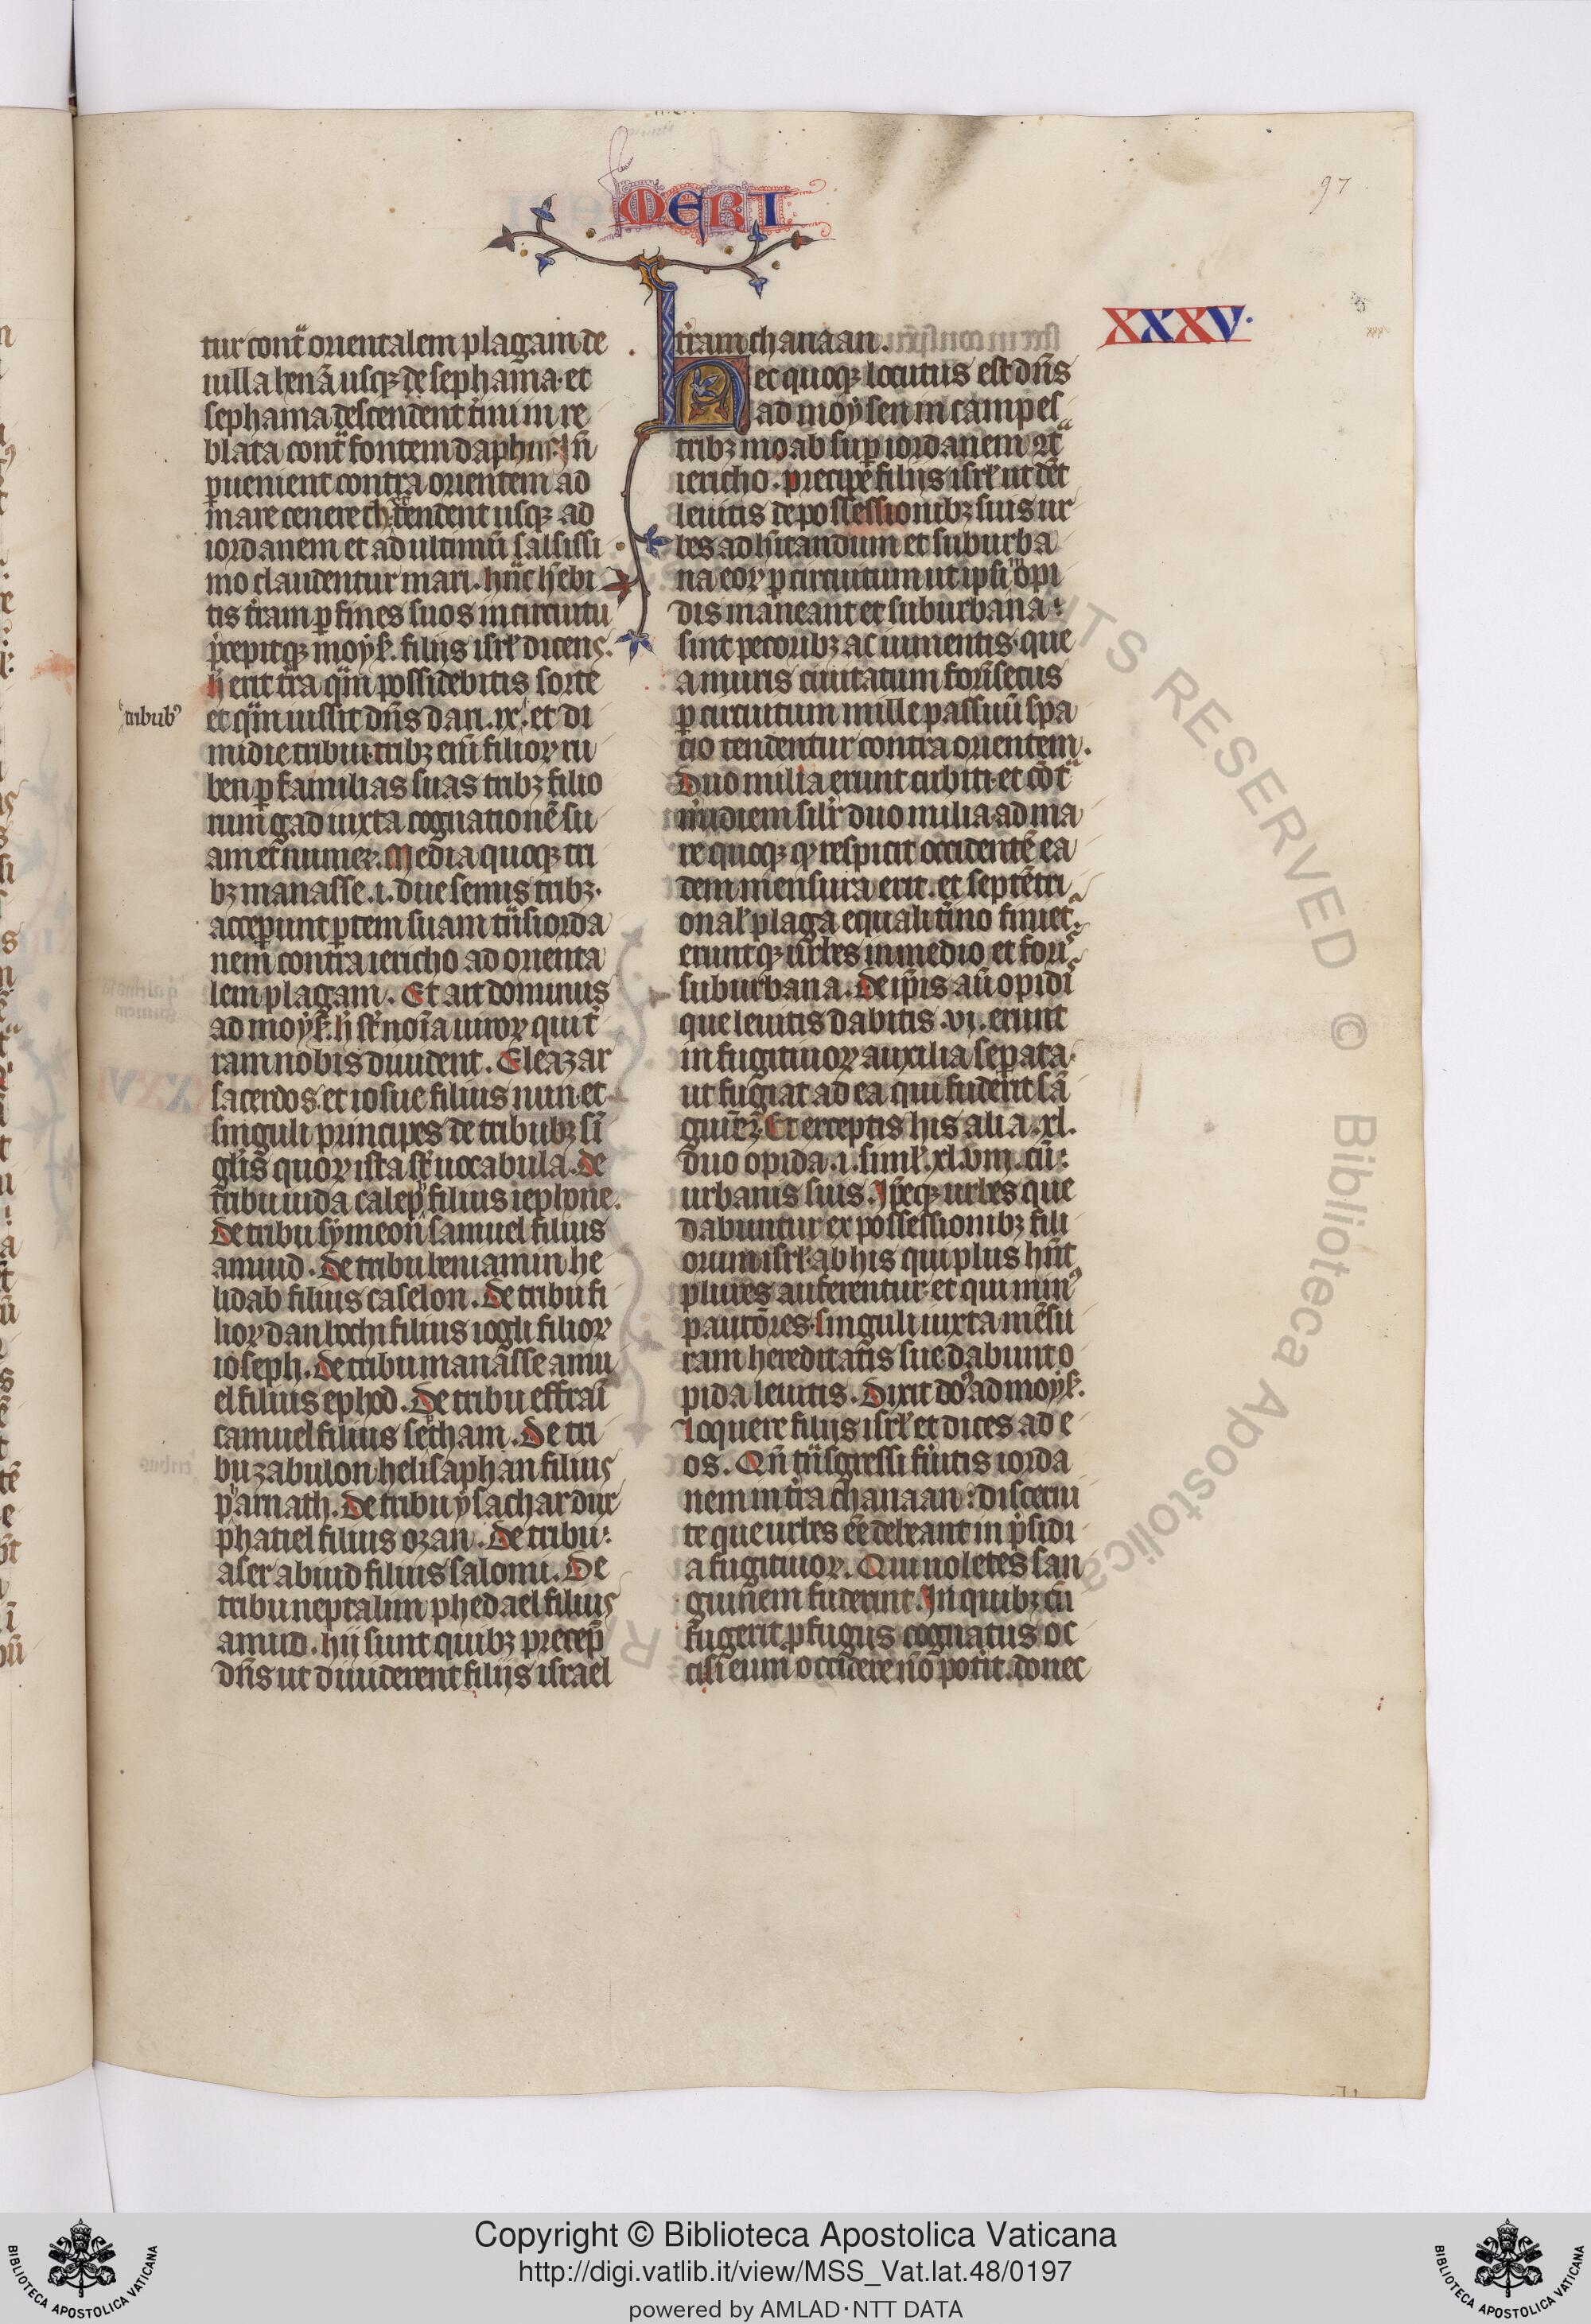 MERI
97
XXXV.
tur cont̄ orientalem plagam de
uilla henā usqꝫ de sephama. et
sephama descendent t̄mi in re
blata cont̄ fontem daphnī. Iñ
ꝑuenient contra orientem ad
mare cenereth. tendent usqꝫ ad
iordanem et ad ultimū salsissi
mo claudentur mari. hāc hēbi
tis t̄ram ꝑ fines suos in circuitu
p̄cepitqꝫ moyẜ. filijs isrł dicens.
h̄ erit t̄ra q̄m possidebitis sorte
tribubꝰ
et q̄m iussit dn̄s dari .ix. et di
midie tribui. tribꝫ eni filioꝝ ru
ben ꝑ familias suas tribꝫ filio
rum gad iuxta cognationē su
am et numeꝝ. Media quoqꝫ tri
bꝫ manasse .i. due semis tribꝫ.
acceꝑunt ꝑtem suam t̄nsiorda
nem contra iericho ad orienta
lem plagam. Et ait dominus
ad moyẜ. h̄ sт̄ noīa uiroꝝ qui t̄
ram nobis diuident. Eleazar
sacerdos. et iosue filius nun. et
singuli principes de tribubꝫ sī
gl̄is quoꝝ ista sт̄ uocabula. de
tribu iuda caleph filius iephone.
De tribu symeon samuel filius
amiud. De tribu beniamin he
lidab filius caselon. De tribu fi
lioꝝ dan bochi filius iogli filioꝝ
ioseph. De tribu manasse amu
el filius ephod. De tribu effraī
camuel filius septham. De tri
bu zabulon helisaphan filius
pharnath. De tribu ysachar dux
phatiel filius ozan. De tribu:
aser abiud filius salomi. De
tribu neptalim phedael filius
amiud. hij sunt quibꝫ precep̄
dn̄s ut diuiderent filijs israel
t̄ram chanaan.
Hec quoqꝫ locutus est dn̄s
ad moysen in campes
tribꝫ moab suꝑ iordanem 9t̄ᵃ
iericho. precipe filijs isrł ut dēt
leuitis de possessionibꝫ suis ur
bes ad hitandum et suburba
na eoꝝ ꝑ circuitum ut ipsi ī opi
dis maneant et suburbana:
sint pecoribꝫ ac iumentis. que
a muris ciuitatum forīsecus
ꝑ circuitum mille passuū spa
cio tendentur contra orientem.
Duo milia erunt cubiti. et cōtᵃ
m̄idiem silr̄ duo milia. ad ma
re quoqꝫ qꝫ respicit occidentē ea
dem mensura erit. et septētri
onał plaga equali t̄mino finiet̄.
eruntqꝫ urbes in medio et forī
suburbana. De ip̄is aū opidī
que leuitis dabitis .vi. erunt
in fugitiuoꝝ auxilia seꝑata.
ut fugiat ad ea qui fuderit sā
guīeꝫ. Et exceptis his alia .xl.
duo opida .i. simł. xl.viii. cū:
urbanis suis. Ip̄eqꝫ urbes que
dabuntur ex possessionibꝫ fili
orum isrł. ab his qui plus hn̄t
plures auferentur. et qui minꝰ
pautōres. singuli iuxta mēsu
ram hereditatis sue dabunt o
pida leuitis. Dixit doꝰ ad moyẜ.
Loquere filijs isrł et dices ad e
os. Qn̄ t̄nsgressi fūitis iorda
nem in t̄ra chanaan: discerni
te que urbes ēē debeant in p̄sidi
a fugitiuoꝝ. Qui noletes san
guinem fuderint. In quibꝫ cū
fugerit ꝓfugus cognatus oc
cisi eum occidere nō potit. donec
RIGHTS RESERVED © Biblioteca Apostolica
Copyright © Biblioteca Apostolica Vaticana
http://digi.vatlib.it/view/MSS_Vat.lat.48/0197
powered by AMLAD·NTT DATA
BIBLIOTECA APOSTOLICA VATICANA
BIBLIOTECA APOSTOLICA VATICANA